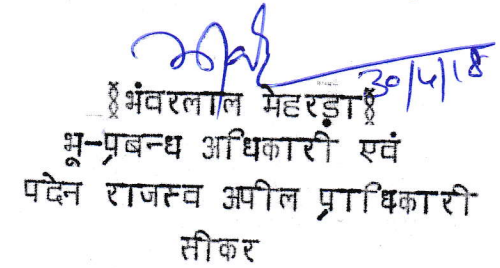 30/4/18
(भंवरलाल मेहरड़ा)
भू-प्रबन्ध अधिकारी एवं
पदेन राजस्व अपील प्राधिकारी
सीकर